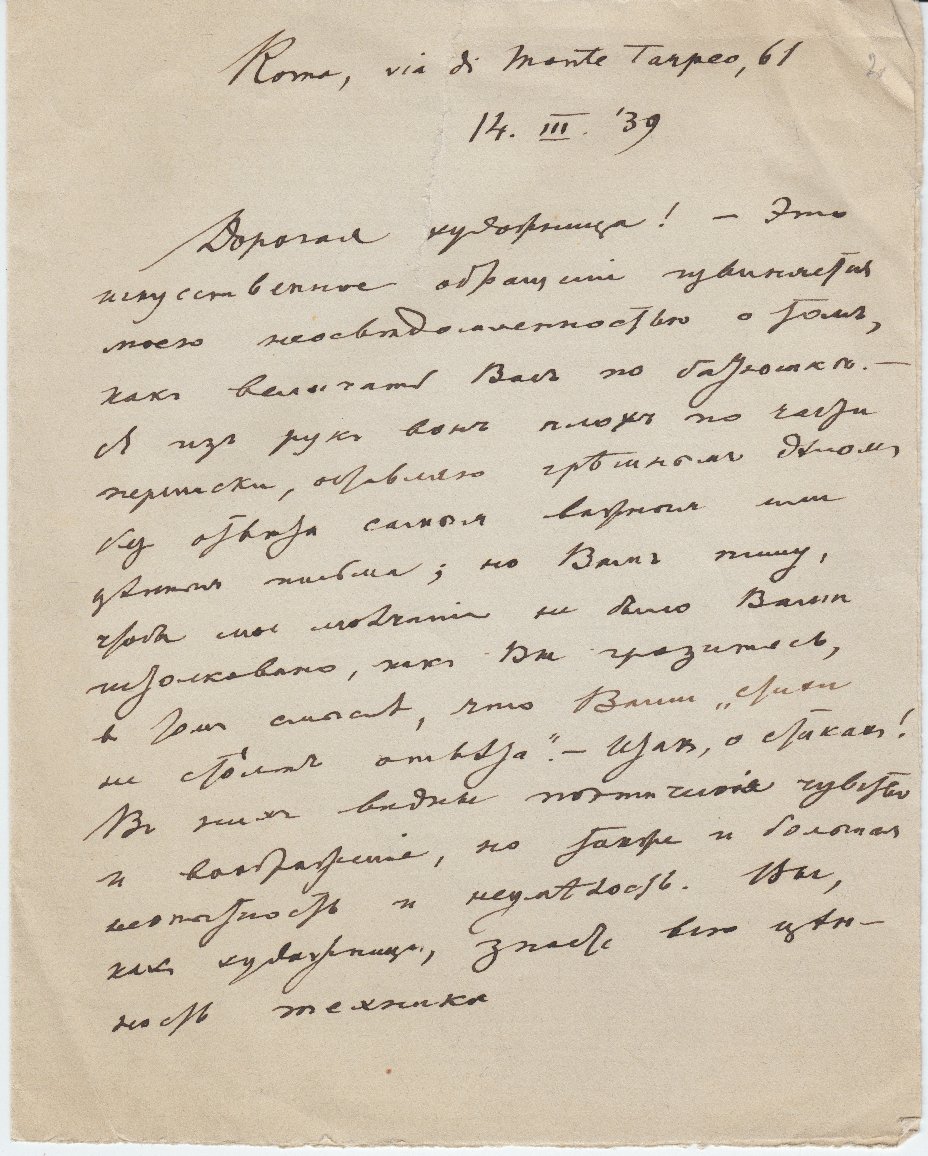 Roma, via di Monte Tarpeo, 61
14. III. '39
Дорогая художница! — Это
искусственное обращеніе извиняется
моею неосвѣдомленностью о томъ,
какъ величать Васъ по батюшкѣ. —
Я изъ рукъ вонъ плохъ по части
переписки, оставляю грѣшнымъ дѣломъ
без отвѣта самыя важныя или
цѣнныя письма; но Вамъ пишу,
чтобы мое молчаніе не было Вами
истолковано, какъ Вы грозитесь,
в томъ смыслѣ, что Ваши „стихи
не стóятъ отвѣта". — Итакъ, о стихахъ!
Въ нихъ видны поэтическія чувство
и воображеніе, но также и большая
неопытность и неумѣлость. Вы,
какъ художница, знаете всю цѣн-
ность техники